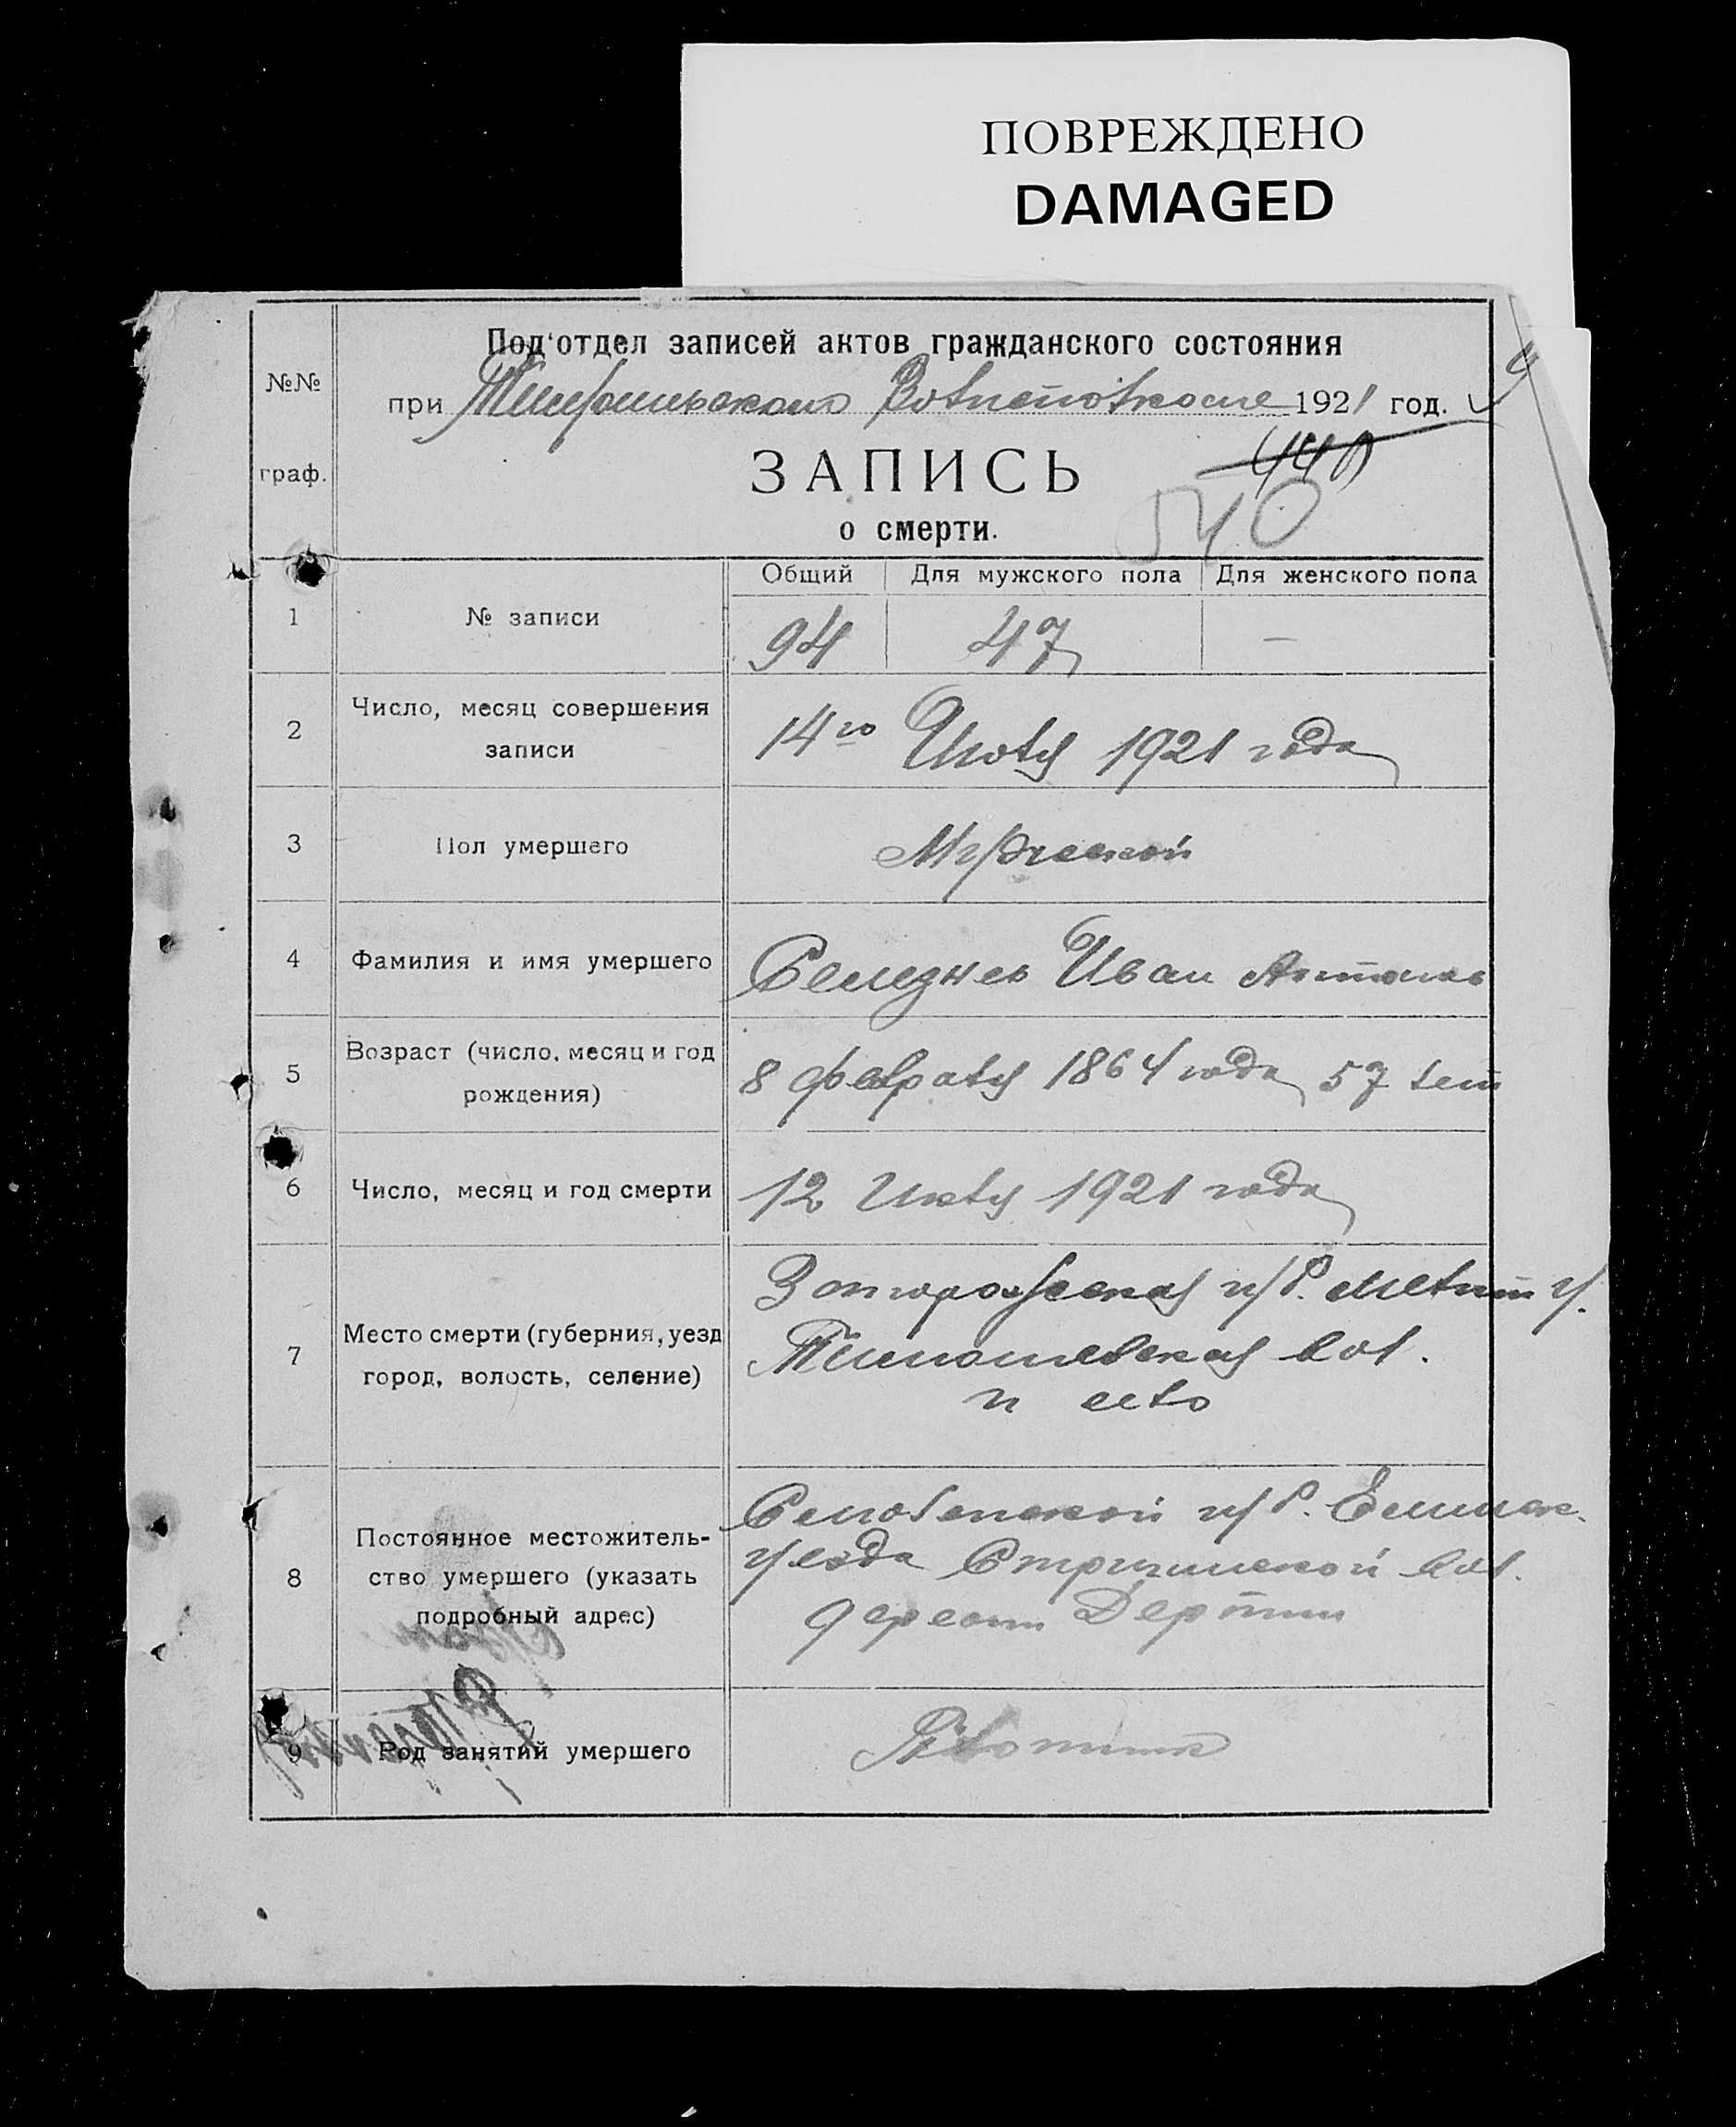 ПОВРЕЖДЕНО
DAMAGED
Под'отдел записей актов гражданского состояния
№№ граф.
при Волисполкоме 1921 год.
440
ЗАПИСЬ
540
о смерти.
Общий Для мужского пола Для женского пола
1 № записи 94 47 —
2 Число, месяц совершения записи 14го Июля 1921 года
3 Пол умершего Мужской
4 Фамилия и имя умершего Селезнев Иван
5 Возраст (число, месяц и год рождения) 8 февраля 1864 года 57 лет
6 Число, месяц и год смерти 12 Июля 1921 года
7 Место смерти (губерния, уезд город, волость, селение) Запорожская губ. Мелит у.
Тимошевская вол.
и село
8 Постоянное местожительство умершего (указать подробный адрес) Смоленской губ.
уезда вол.
9 Род занятий умершего